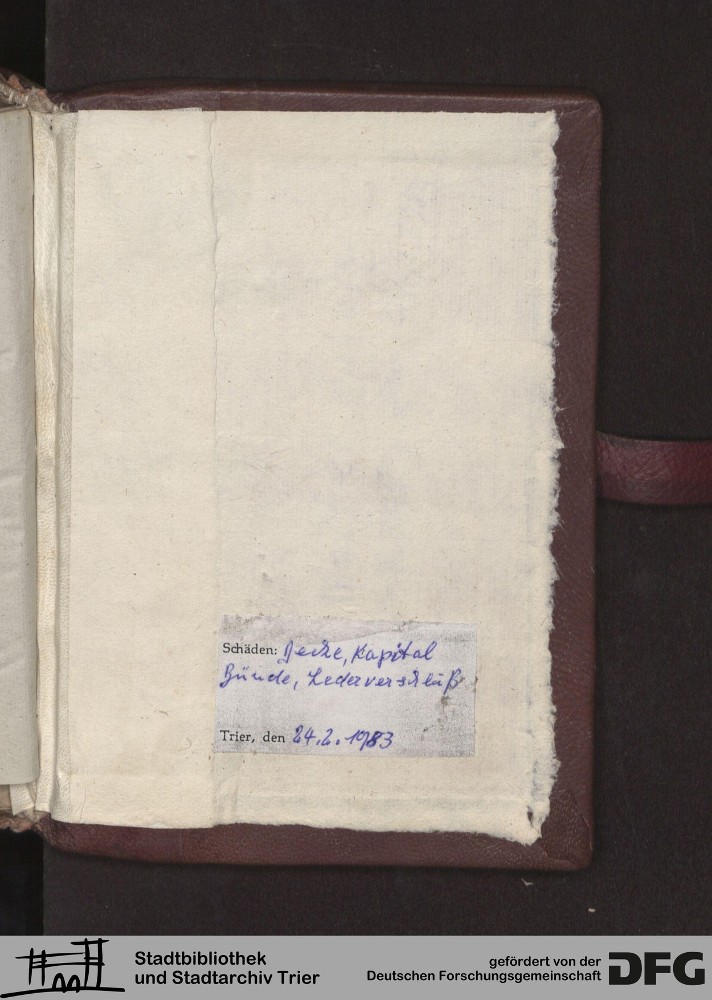 Schäden: Decke, Kapital
Bünde, Lederverschluß
Trier, den 24.2.1983
Stadtbibliothek
und Stadtarchiv Trier
gefördert von der
Deutschen Forschungsgemeinschaft
DFG